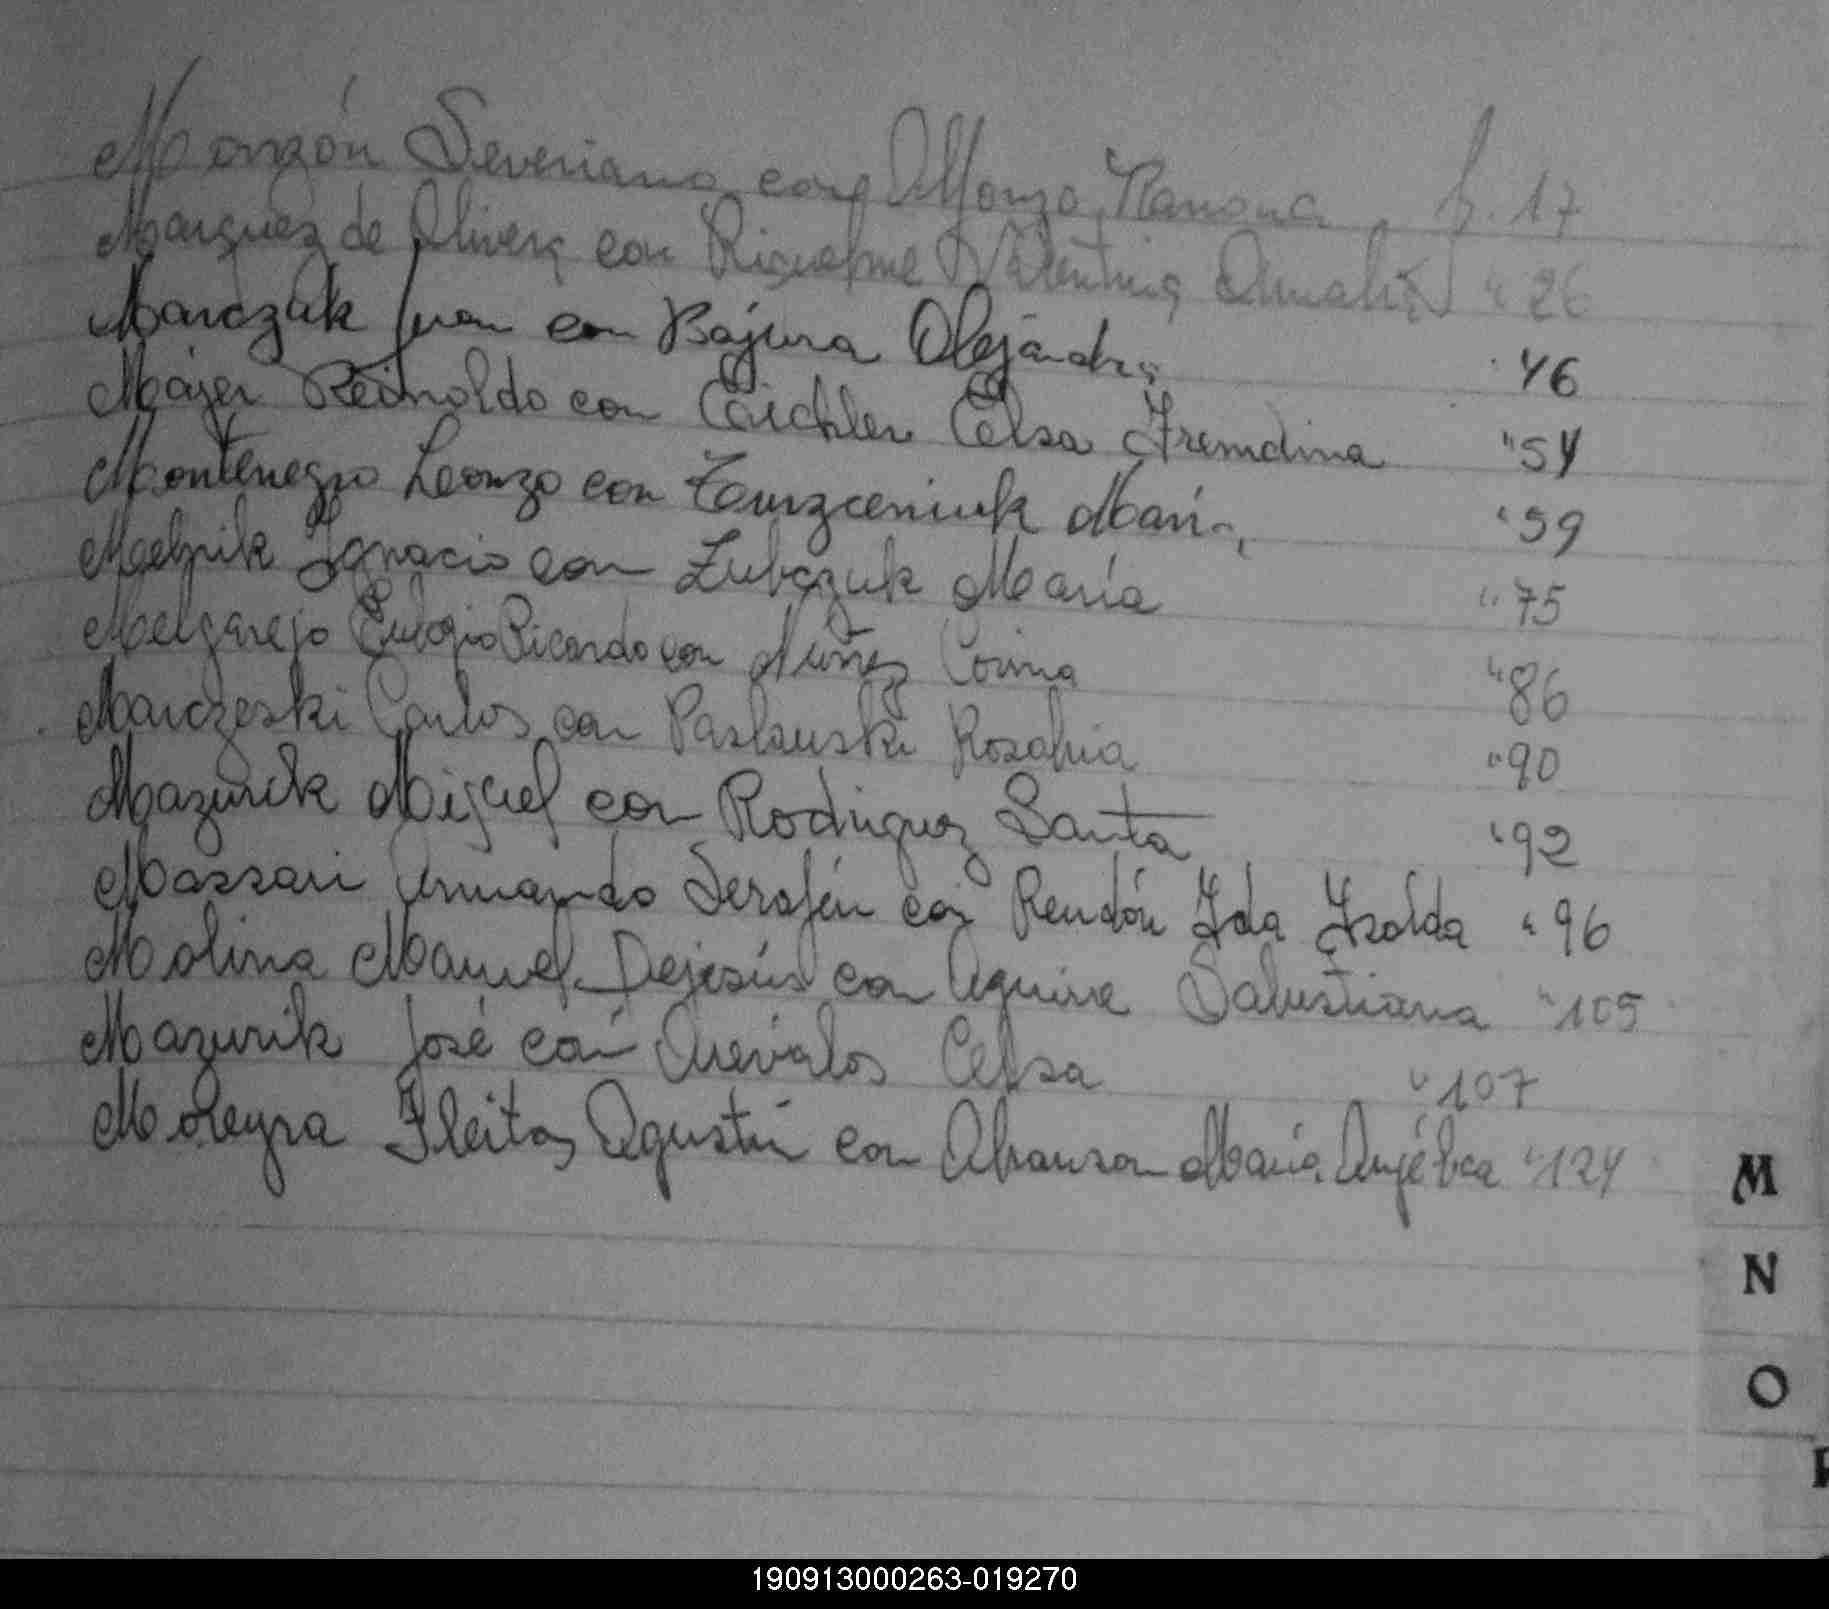 Monzón Severiano con Alfonzo Ramona f. 17
Marquez de Olivera con Riquelme Valentina Amalia " 26
Marczuk Juan con Bajura Alejandra " 46
Majer Reinoldo con Eichler Elsa Fremdina " 54
Montenegro Leonzo con María " 59
Melnik Ignacio con Zubczuk María " 75
Melgarejo Eulogio Ricardo con Núñez Corina " 86
Marczeski Carlos con Paslauski Rosalia " 90
Mazurik Miguel con Rodriguez Santa " 92
Massari Armando Serafín con Rendón Ida Isolda " 96
Molina Manuel Dejesús con Aguirre Salustiana " 105
Mazurik José con Arévalos Celsa " 107
Moleyra Fleitas Agustín con María Angélica " 124
M
N
O
P
190913000263-019270